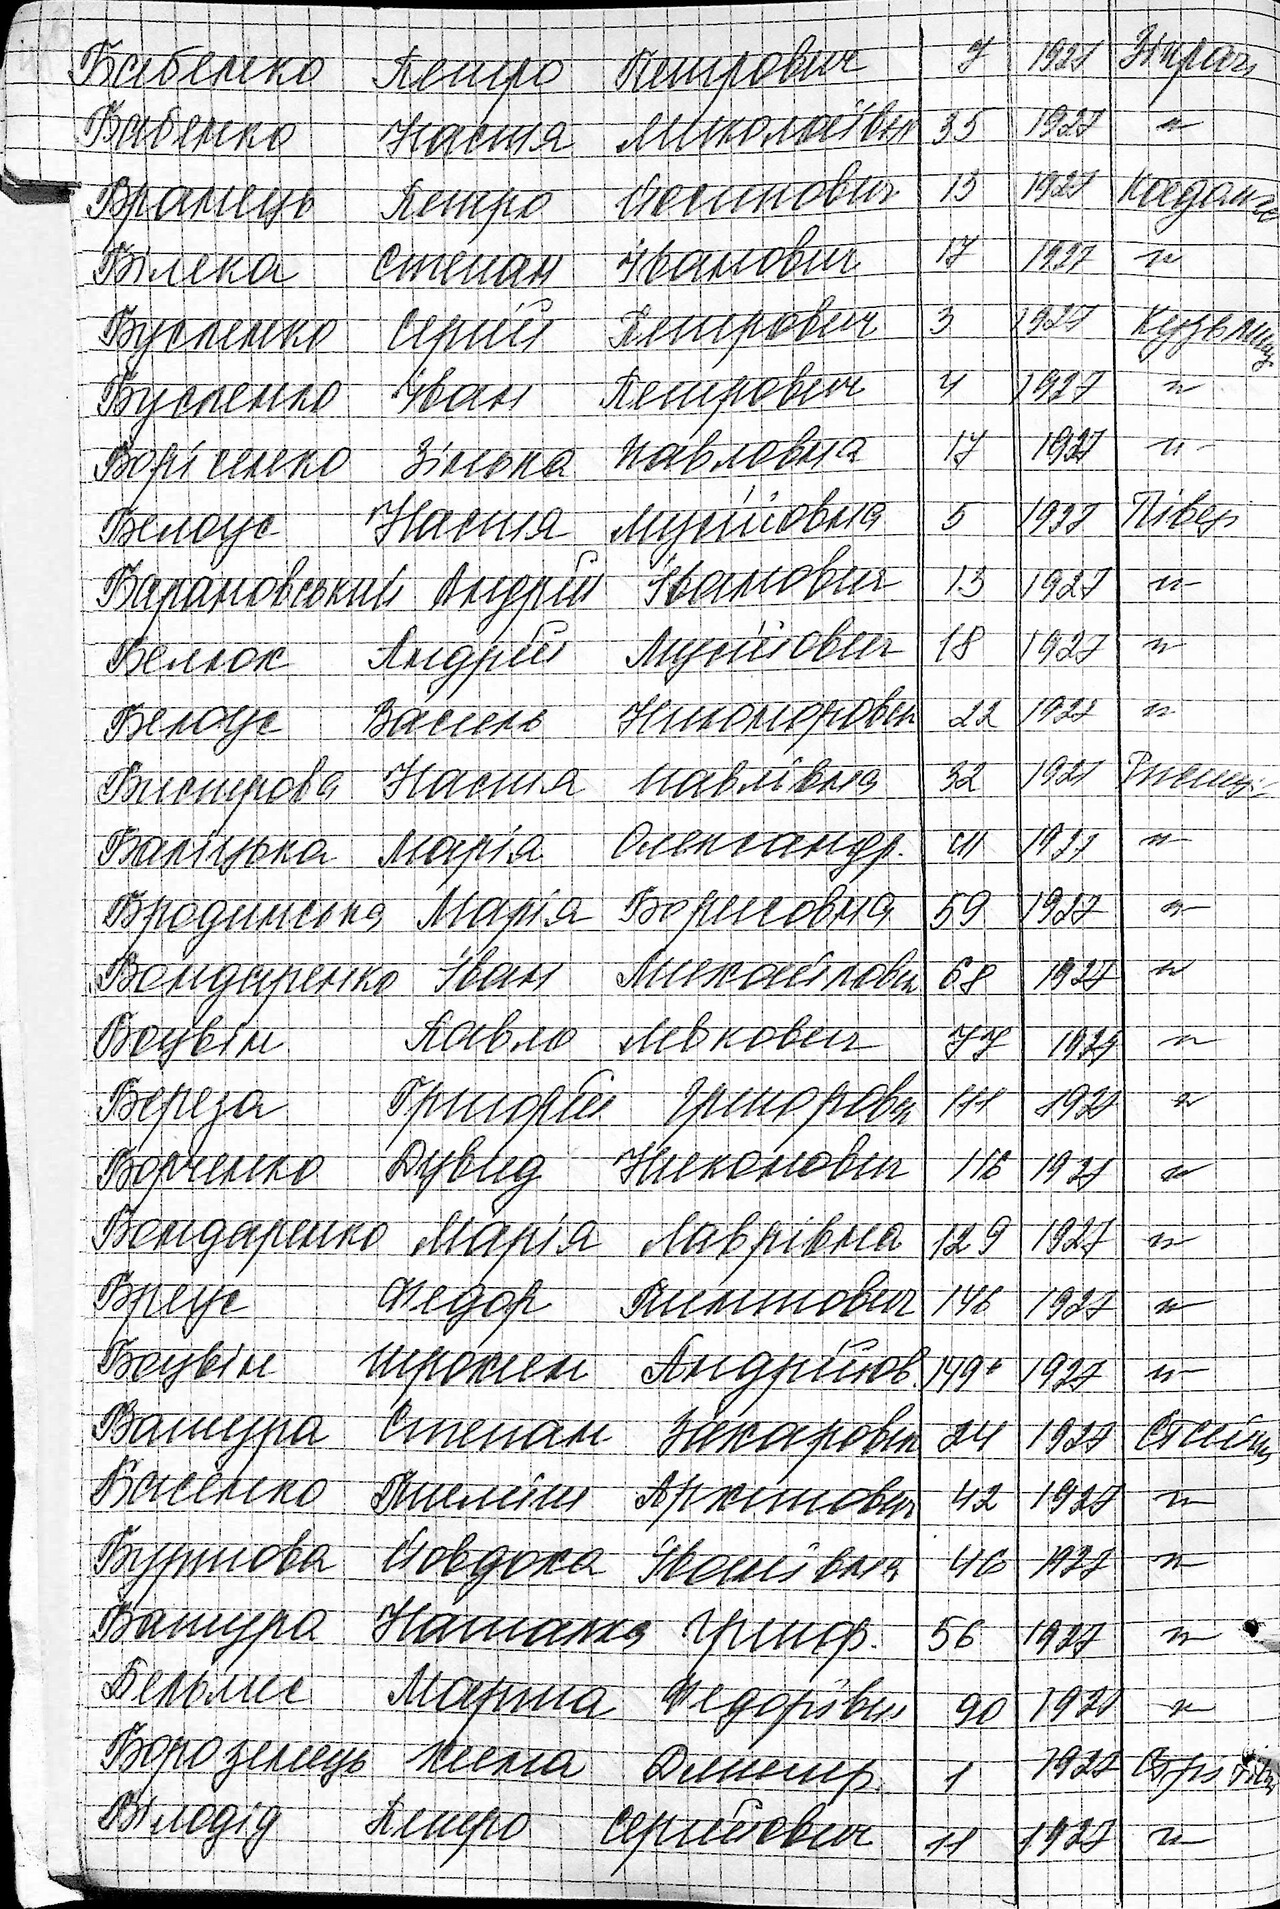 Бабенко Петро Петрович 7 1927
Бабенко Настя Миколаївн 35 1927 "
Бранець Петро Йосипович 13 1927
Білека Степан Іванович 17 1927 "
Бусленко Сергій Петрович 3 1927
Бусленко Іван Петрович 4 1927 "
Борісенко Зінька Павловна 17 1927 "
Белоус Настя Мусійовна 5 1927 Півец
Барановський Андрій Іванович 13 1927 "
Белюк Андрій Мусійович 18 1927 "
Белоус Василь Никонорович 22 1927 "
Настя Павлівна 32 1927
Баліцька Марія Олександр. 41 1927 "
Бродинська Марія Борисовна 59 1927 "
Бондаренко Іван Михайлович 68 1927 "
Боцвін Павло Левкович 77 1927 "
Береза Григорій Григорович 111 1927 "
Борченко Дувид Никонович 116 1927 "
Бондаренко Марія Лаврівна 129 1927 "
Бреус Федор Пилипович 146 1927 "
Боцвін Андрійов. 149 1927 "
Башура Степан Захарович 24 1927
Басенко Пилип Архипович 42 1927 "
Йовдоха Іванівна 46 1927 "
Башура Наталка Григор. 56 1927 "
Бельмис Марина Федорівн 90 1927 "
Борозенець Дмитр. 1 1927
Білодід Петро Сергійович 11 1927 "